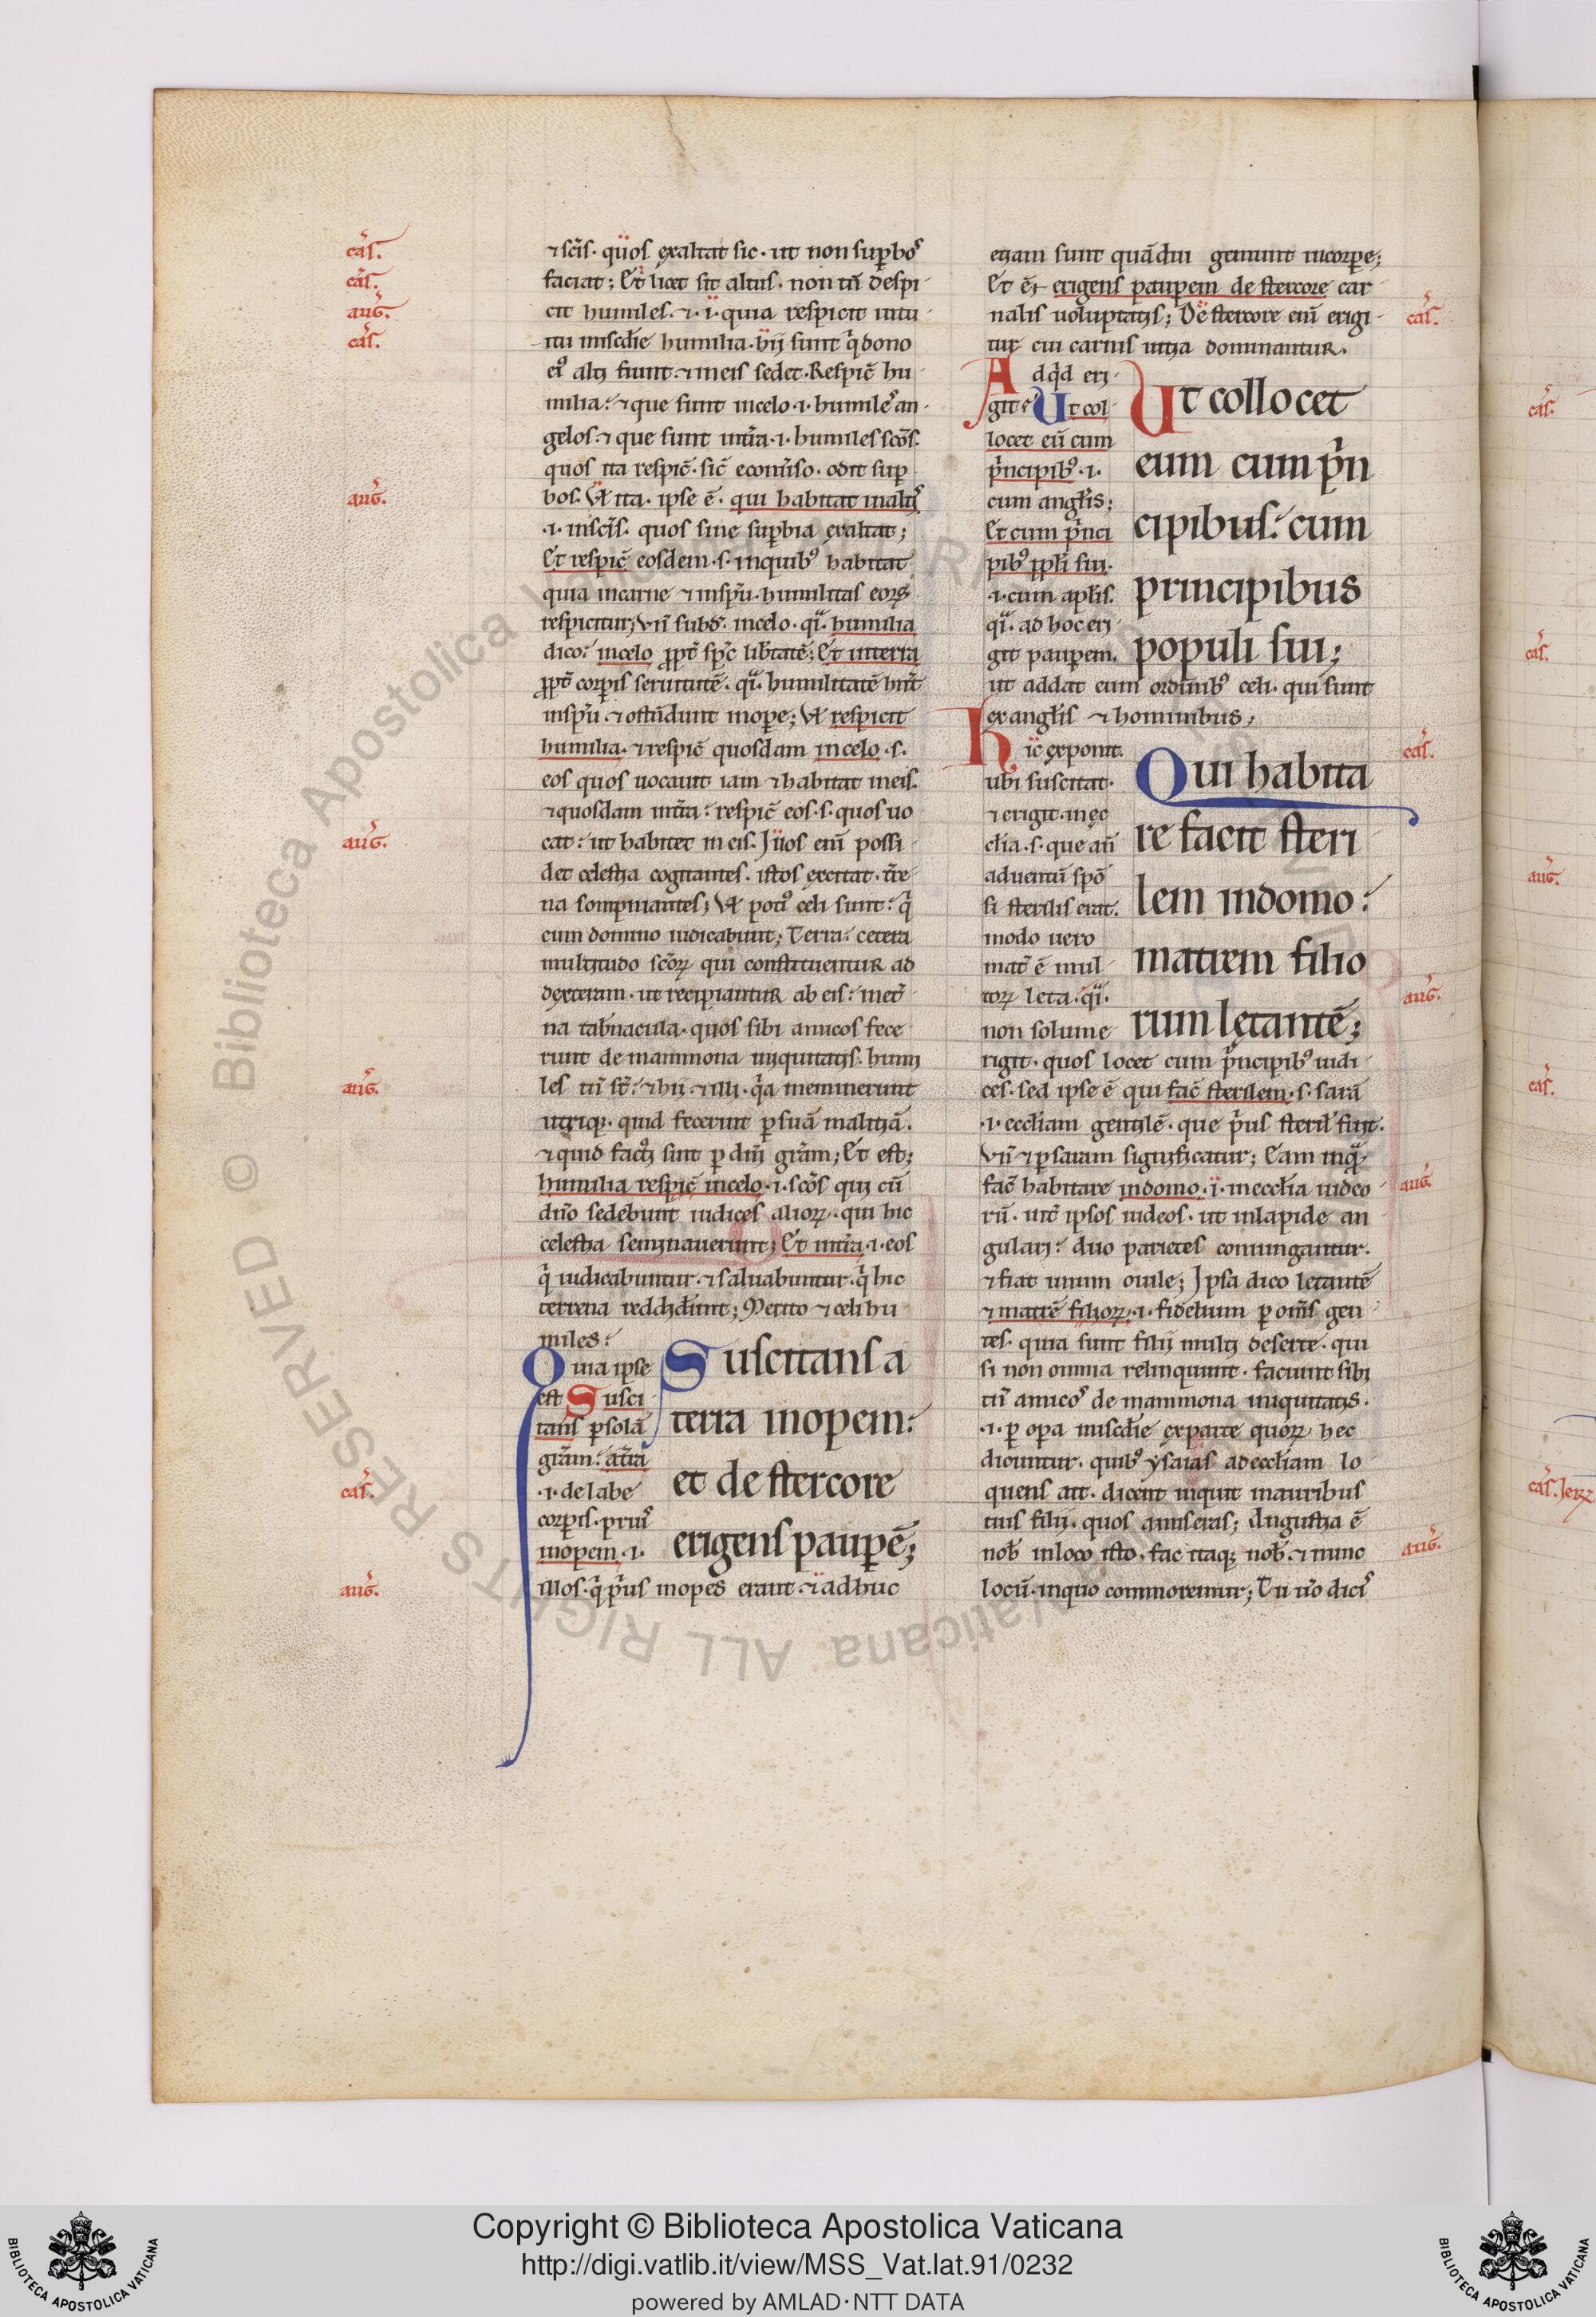 ⁊ scı̄s. quos exaltat sic. ut non suꝑbos
faciat; Et licet sit altus. non tn̄ despi
cit humiles. ⁊ .i. quia respicit intu
itu miscd̄ie humilia. hij sunt q̇ dono
eiꝰ alti fiunt. ⁊ in eis sedet. Respic̄ hu
milia. ⁊ que sunt in celo .i. humiles an
gelos. ⁊ que sunt in tr̄a .i. humiles scōs.
quos ita respic̄. sic̄ econuerso. odit suꝑ
bos. Vel ita. ipse ē. qui habitat in altis
.i. in scīs. quos sine suꝑbia exaltat;
Et respic̄ eosdem .s. in quibꝰ habitat
quia in carne ⁊ in spū. humilitas eorꝫ
respicitur; vn̄ subd̄. in celo. qͣ. humilia
dico. in celo ꝓpt̄ spc̄ lib̄tatē; Et in terra
ꝓpt̄ corpis seruitutē. qͣ. humilitatē hn̄t
in spū. ⁊ ostn̄dunt in ope; Vel respicit
humilia. ⁊ respic̄ quosdam in celo .s.
eos quos uocauit iam ⁊ habitat in eis.
⁊ quosdam in tr̄a. respic̄ eos .s. quos uo
cat. ut habitet in eis. Illos eni᷑ possi
det celestia cogitantes. istos excitat. tr̄e
na sompniantes; Vel potiꝰ celi sunt. q̇
cum domino iudicabunt; Terra. cetera
multitudo scōrꝫ qui constituentur ad
dexteram. ut recipiantur ab eis. in et̄
na tab̄nacula. quos sibi amicos fece
runt de mammona iniquitatis. humi
les tn̄ st̄. ⁊ hij. ⁊ illi. qͣ meminerunt
utriqꝫ. quid fecerint ꝑ suā malitiā.
⁊ quid facti sint ꝑ diu̅ grām; Et est;
humilia respic̄ in celo .i. scōs qui cū
dn̄o sedebunt iudices aliorꝫ. qui hic
celestia seminauerunt; Et in tr̄a .i. eos
q̇ iudicabuntur. ⁊ saluabuntur. q̇ hic
terrena reddidunt; Merito ⁊ celi hu
miles.
Quia ipse
est Susci
tans ꝑ solā
grām. a tr̄a
.i. de labe
corpis. prius
inopem .i.
illos. q̇ pͥus inopes erant. ⁊ adhuc
Suscitans a
terra inopem.
et de stercore
erigens pauꝑē;
etiam sunt quādiu gemunt in corpe;
Et ē erigens pauꝑem de stercore car
nalis uoluptatis; De stercore eni᷑ erigi
tur cui carnis uitia dominantur.
Ad qͥd eri
git. Ut col
locet eū cum
pͥncipibꝰ .i.
cum anglis;
Et cum pͥnci
pibꝰ ppli sui.
.i. cum aplis.
qͣ. ad hoc eri
git pauꝑem.
Ut collocet
eum cum pͥn
cipibus. cum
principibus
populi sui;
ut addat eum ordinibꝰ celi. qui sunt
ex anglis ⁊ hominibus.
Hic exponit.
ubi suscitat.
⁊ erigit. in ec
clia .s. que an̄
aduentū spō
si sterilis erat.
modo uero
mat̄ ē mul
torꝫ leta. qͣ.
non solum e
Qui habita
re facit steri
lem in domo.
matrem filio
rum letantē;
rigit. quos locet cum pͥncipibꝰ iudi
ces. sed ipse ē qui fac̄ sterilem .s. sarā
.i. eccliam gentilē. que pͥus steril̄ fuit.
vn̄ ⁊ ꝑ saram significatur; Eam inqͣ
fac̄ habitare in domo .i. in ecclia iudeo
rū. int̄ ipsos iudeos. ut in lapide an
gulari. duo parietes coniungantur.
⁊ fiat unum ouile; Ipsā dico letantē
⁊ matrē filiorꝫ .i. fidelium ꝑ om̄s gen
tes. quia sunt filij multi deserte. qui
si non omnia relinquunt. faciunt sibi
tn̄ amicos de mammona iniquitatis.
.i. ꝑ opa miscd̄ie ex parte quorꝫ hec
dicuntur. quibꝰ ysaias ad eccliam lo
quens ait. dicent inquit in auribus
tuis filij. quos amiseras; Angustia ē
nob̄ in loco isto. fac itaqꝫ nob̄. ⁊ nunc
locū. in quo commoremur; Tu u̅o dicis
cas̄.
cas̄.
auḡ.
cas̄.
auḡ.
auḡ.
auḡ.
cas̄.
auḡ.
cas̄.
cas̄.
auḡ.
auḡ
auḡ.
cas̄.
cas̄.
auḡ.
cas̄.
Biblioteca Apostolica Vaticana ALL RIGHTS RESERVED ©
Copyright © Biblioteca Apostolica Vaticana
http://digi.vatlib.it/view/MSS_Vat.lat.91/0232
powered by AMLAD·NTT DATA
BIBLIOTECA APOSTOLICA VATICANA
BIBLIOTECA APOSTOLICA VATICANA